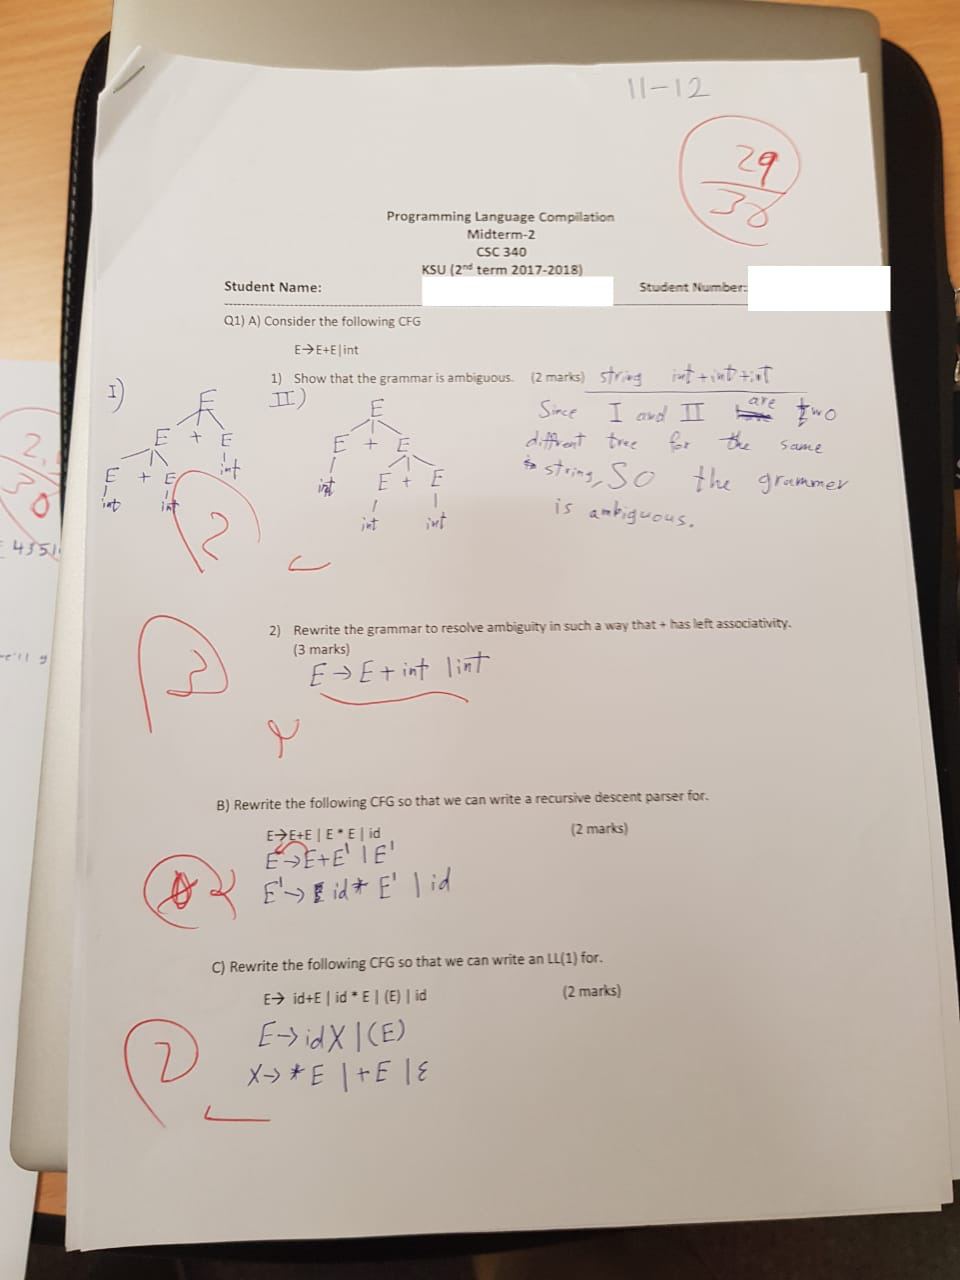 11-12
29
30
Programming Language Compilation
Midterm-2
CSC 340
KSU (2nd term 2017-2018)
Student Name: Student Number:
Q1) A) Consider the following CFG
E→E+E|int
1) Show that the grammar is ambiguous. (2 marks) string int+int+int
I) II)
E
E + E
E + E int
int int
E
E + E
int E + E
int int
Since I and II are two
diffrent tree for the same
string, SO the grammer
is ambiguous.
2
2) Rewrite the grammar to resolve ambiguity in such a way that + has left associativity.
(3 marks)
E → E + int | int
3
B) Rewrite the following CFG so that we can write a recursive descent parser for.
E→E+E | E * E | id (2 marks)
E→E+E' | E'
E'→ id * E' | id
C) Rewrite the following CFG so that we can write an LL(1) for.
E→ id+E | id * E | (E) | id (2 marks)
E→idX | (E)
X→ *E | +E | ε
2
2,
30
4351
e'll g